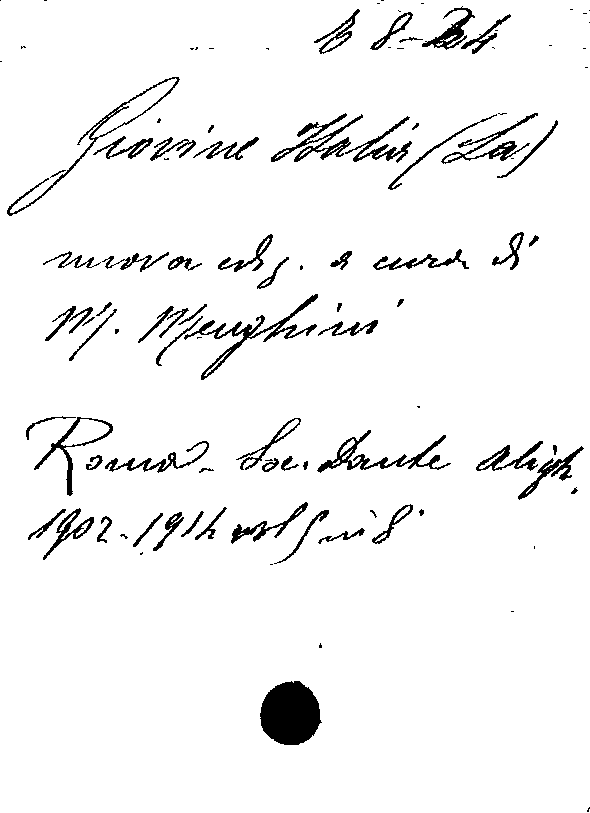 E 8-24
Giovine Italia (La)
nuova ediz. a cura di
M. Menghini
Roma - Soc. Dante Aligh.
1902-1914 vol 5 in 8°